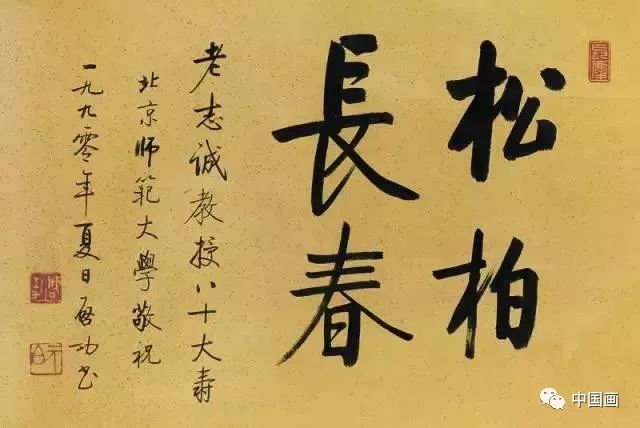 松柏
長春
老志诚教授八十大寿
北京师範大學敬祝
一九九零年夏日启功书
中国画